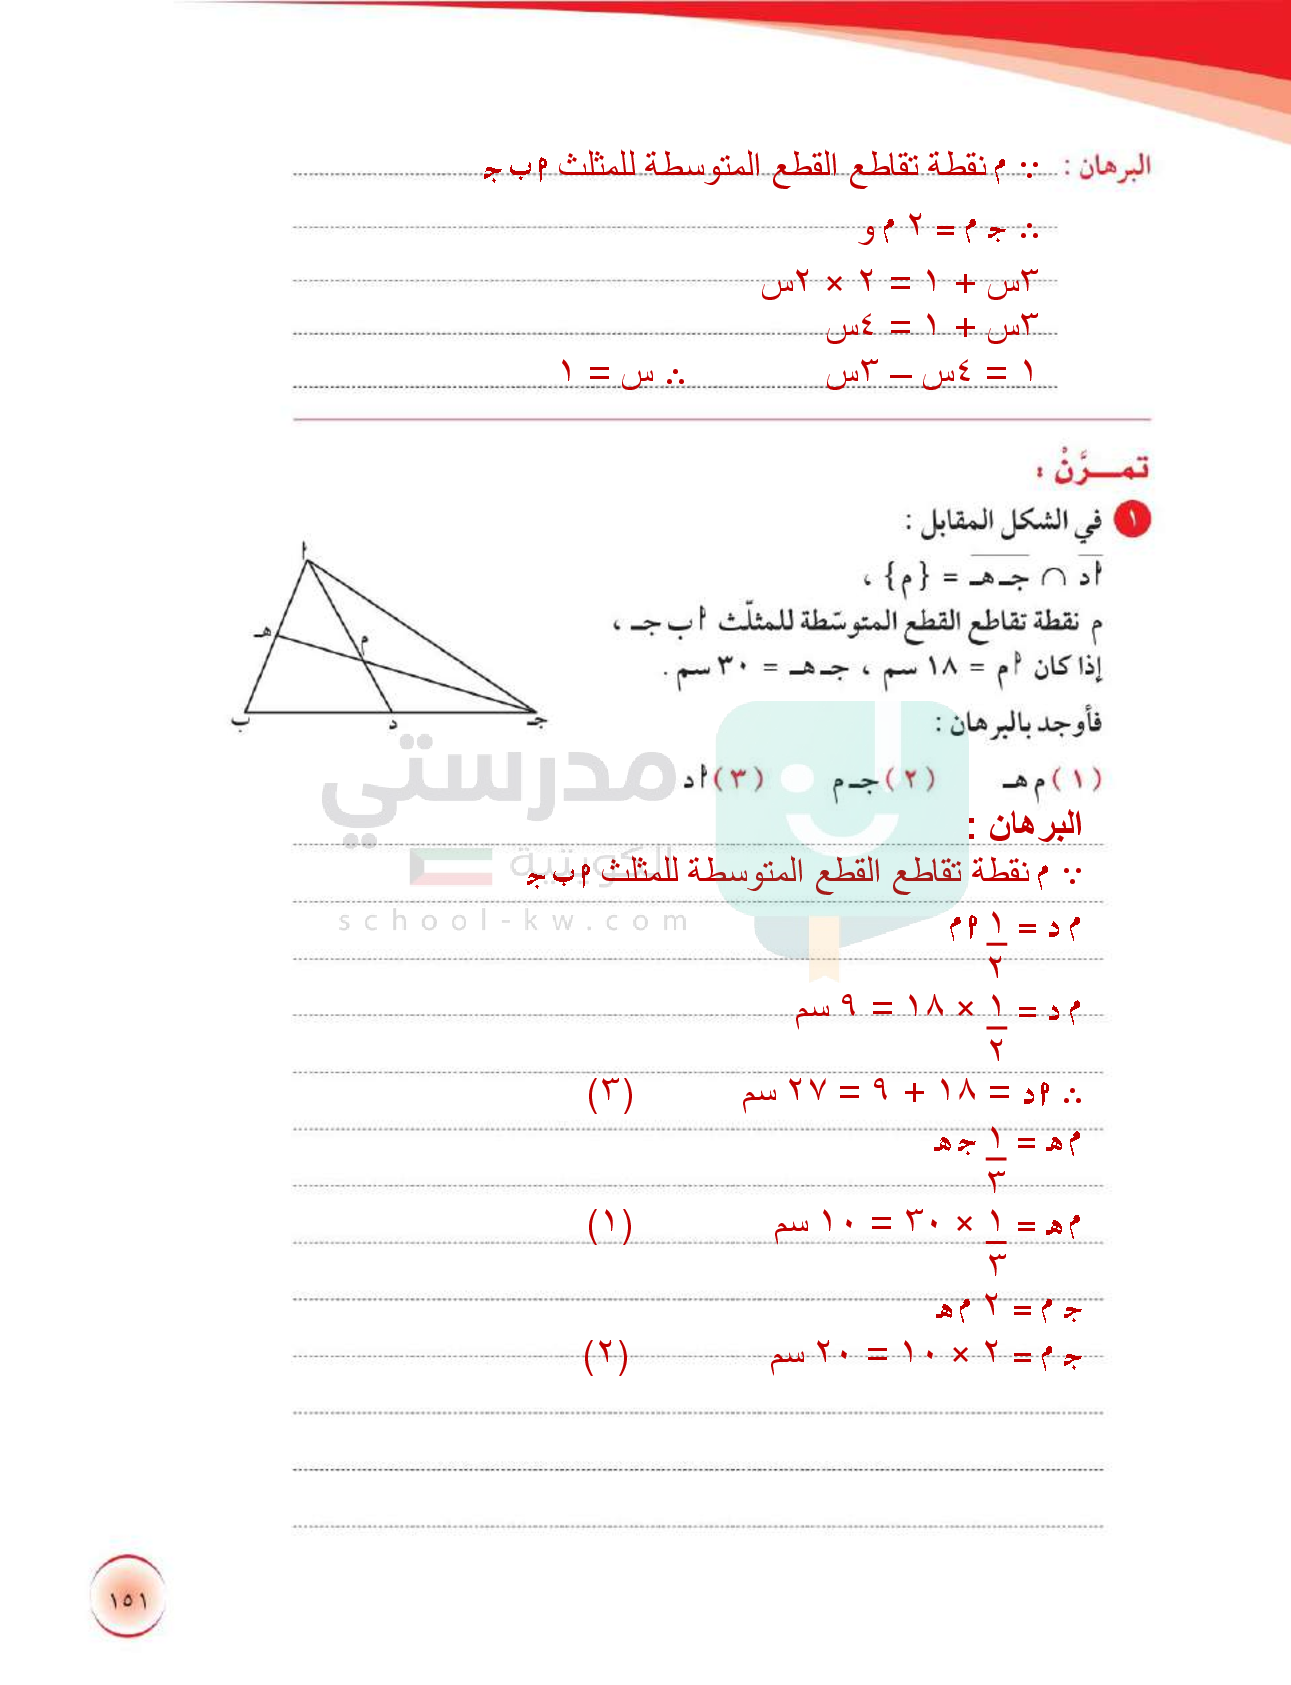 البرهان : ∵ م نقطة تقاطع القطع المتوسطة للمثلث م ب ج
∴ ج م = ٢ م و
٣س + ١ = ٢ × ٢س
٣س + ١ = ٤س
١ = ٤س – ٣س ∴ س = ١
تمـــرَّنْ :
١ في الشكل المقابل :
أد ∩ جـ هـ = {م} ،
م نقطة تقاطع القطع المتوسّطة للمثلّث أ ب جـ ،
إذا كان أم = ١٨ سم ، جـ هـ = ٣٠ سم .
فأوجد بالبرهان :
(١) م هـ (٢) جـ م (٣) أ د
أ
هـ
م
ب
د
جـ
البرهان :
∵ م نقطة تقاطع القطع المتوسطة للمثلث أ ب ج
م د = ١/٢ أ م
م د = ١/٢ × ١٨ = ٩ سم
∴ أ د = ١٨ + ٩ = ٢٧ سم (٣)
م هـ = ١/٣ ج هـ
م هـ = ١/٣ × ٣٠ = ١٠ سم (١)
ج م = ٢ م هـ
ج م = ٢ × ١٠ = ٢٠ سم (٢)
مدرستي
الكويتية
school-kw.com
١٥١